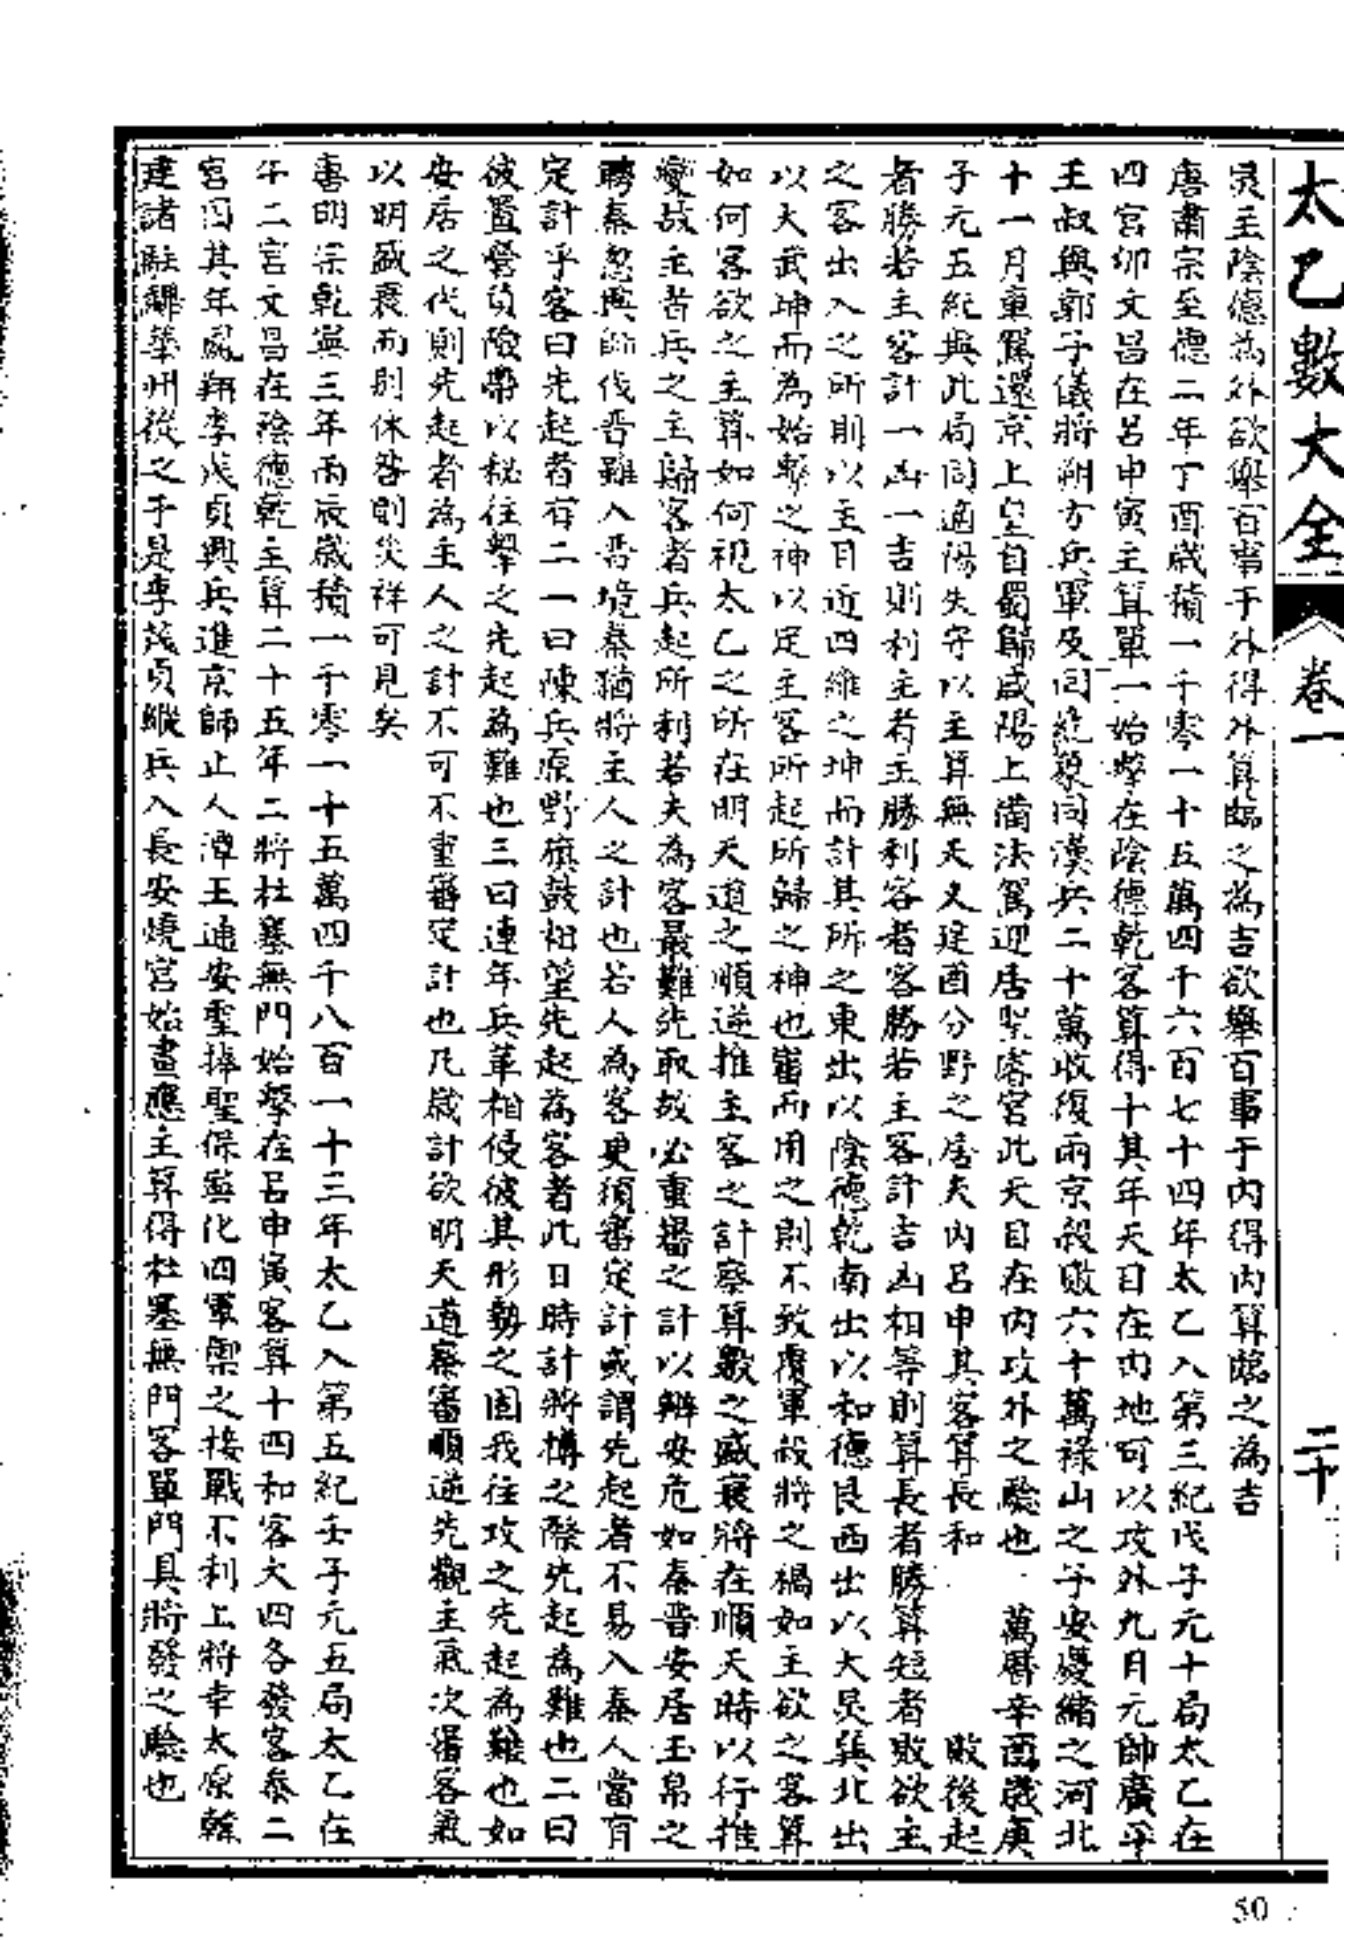 太乙數大全 卷一 二十
炅主陰德為外欲舉百事于外得外算臨之為吉欲舉百事于內得內算臨之為吉
唐肅宗至德二年丁酉歲積一千零一十五萬四千六百七十四年太乙入第三紀戊子元十局太乙在
四宮卯文昌在呂申寅主算單一始擊在陰德乾客算得十其年天目在內地可以攻外九月元帥廣平
王叔與郭子儀將朔方兵軍及回紇眾同漢兵二十萬收復兩京殺敗六十萬祿山之子安慶緒之河北
十一月車駕還京上皇自蜀歸咸陽上備法駕迎居聖宮此天目在內攻外之驗也 萬曆辛酉歲庚
子元五紀與此局同遼陽失守以主算無天又建酉分野之居夫內呂申其客算長和 敗後起
者勝若主客計一凶一吉則利主者主勝利客者客勝若主客計吉凶相等則算長者勝算短者敗欲主
之客出入之所則以主目近四維之坤而計其所之東出以陰德乾南出以和德艮西出以大炅巽北出
以大武坤而為始擊之神以定主客所起所歸之神也審而用之則不致覆軍殺將之禍如主欲之客算
如何客欲之主算如何視太乙之所在明天道之順逆推主客之計察算數之盛衰將在順天時以行推
變故主者兵之主歸客者兵起所利若夫為客最難先取故必重審之計以辨安危如秦晉安居玉帛之
聘秦忽興師伐晉雖入晉境秦猶將主人之計也若人為客更須審定計或謂先起者不易入秦人當有
定計乎客曰先起者有二一曰陳兵原野旗鼓相望先起為客者此日時計將博之際先起為難也二曰
彼置營負險帶以秘往擊之先起為難也三曰連年兵革相侵彼其形勢之固我往攻之先起為難也如
安居之代則先起者為主人之計不可不重審定計也凡歲計欲明天道察審順逆先觀主氣次揣客氣
以明盛衰而則休咎則災祥可見矣
唐明宗乾寧三年丙辰歲積一千零一十五萬四千八百一十三年太乙入第五紀壬子元五局太乙在
午二宮文昌在陰德乾主算二十五年二將杜塞無門始擊在呂申寅客算十四和客大四各發客泰二
宮囚其年鳳翔李茂貞興兵進京師止人潭王通安聖捧聖保寧化四軍禦之接戰不利上將幸太原韓
建諸駐驛華州從之于是李茂貞縱兵入長安燒宮始盡應主算得杜塞無門客單門具將發之驗也
50